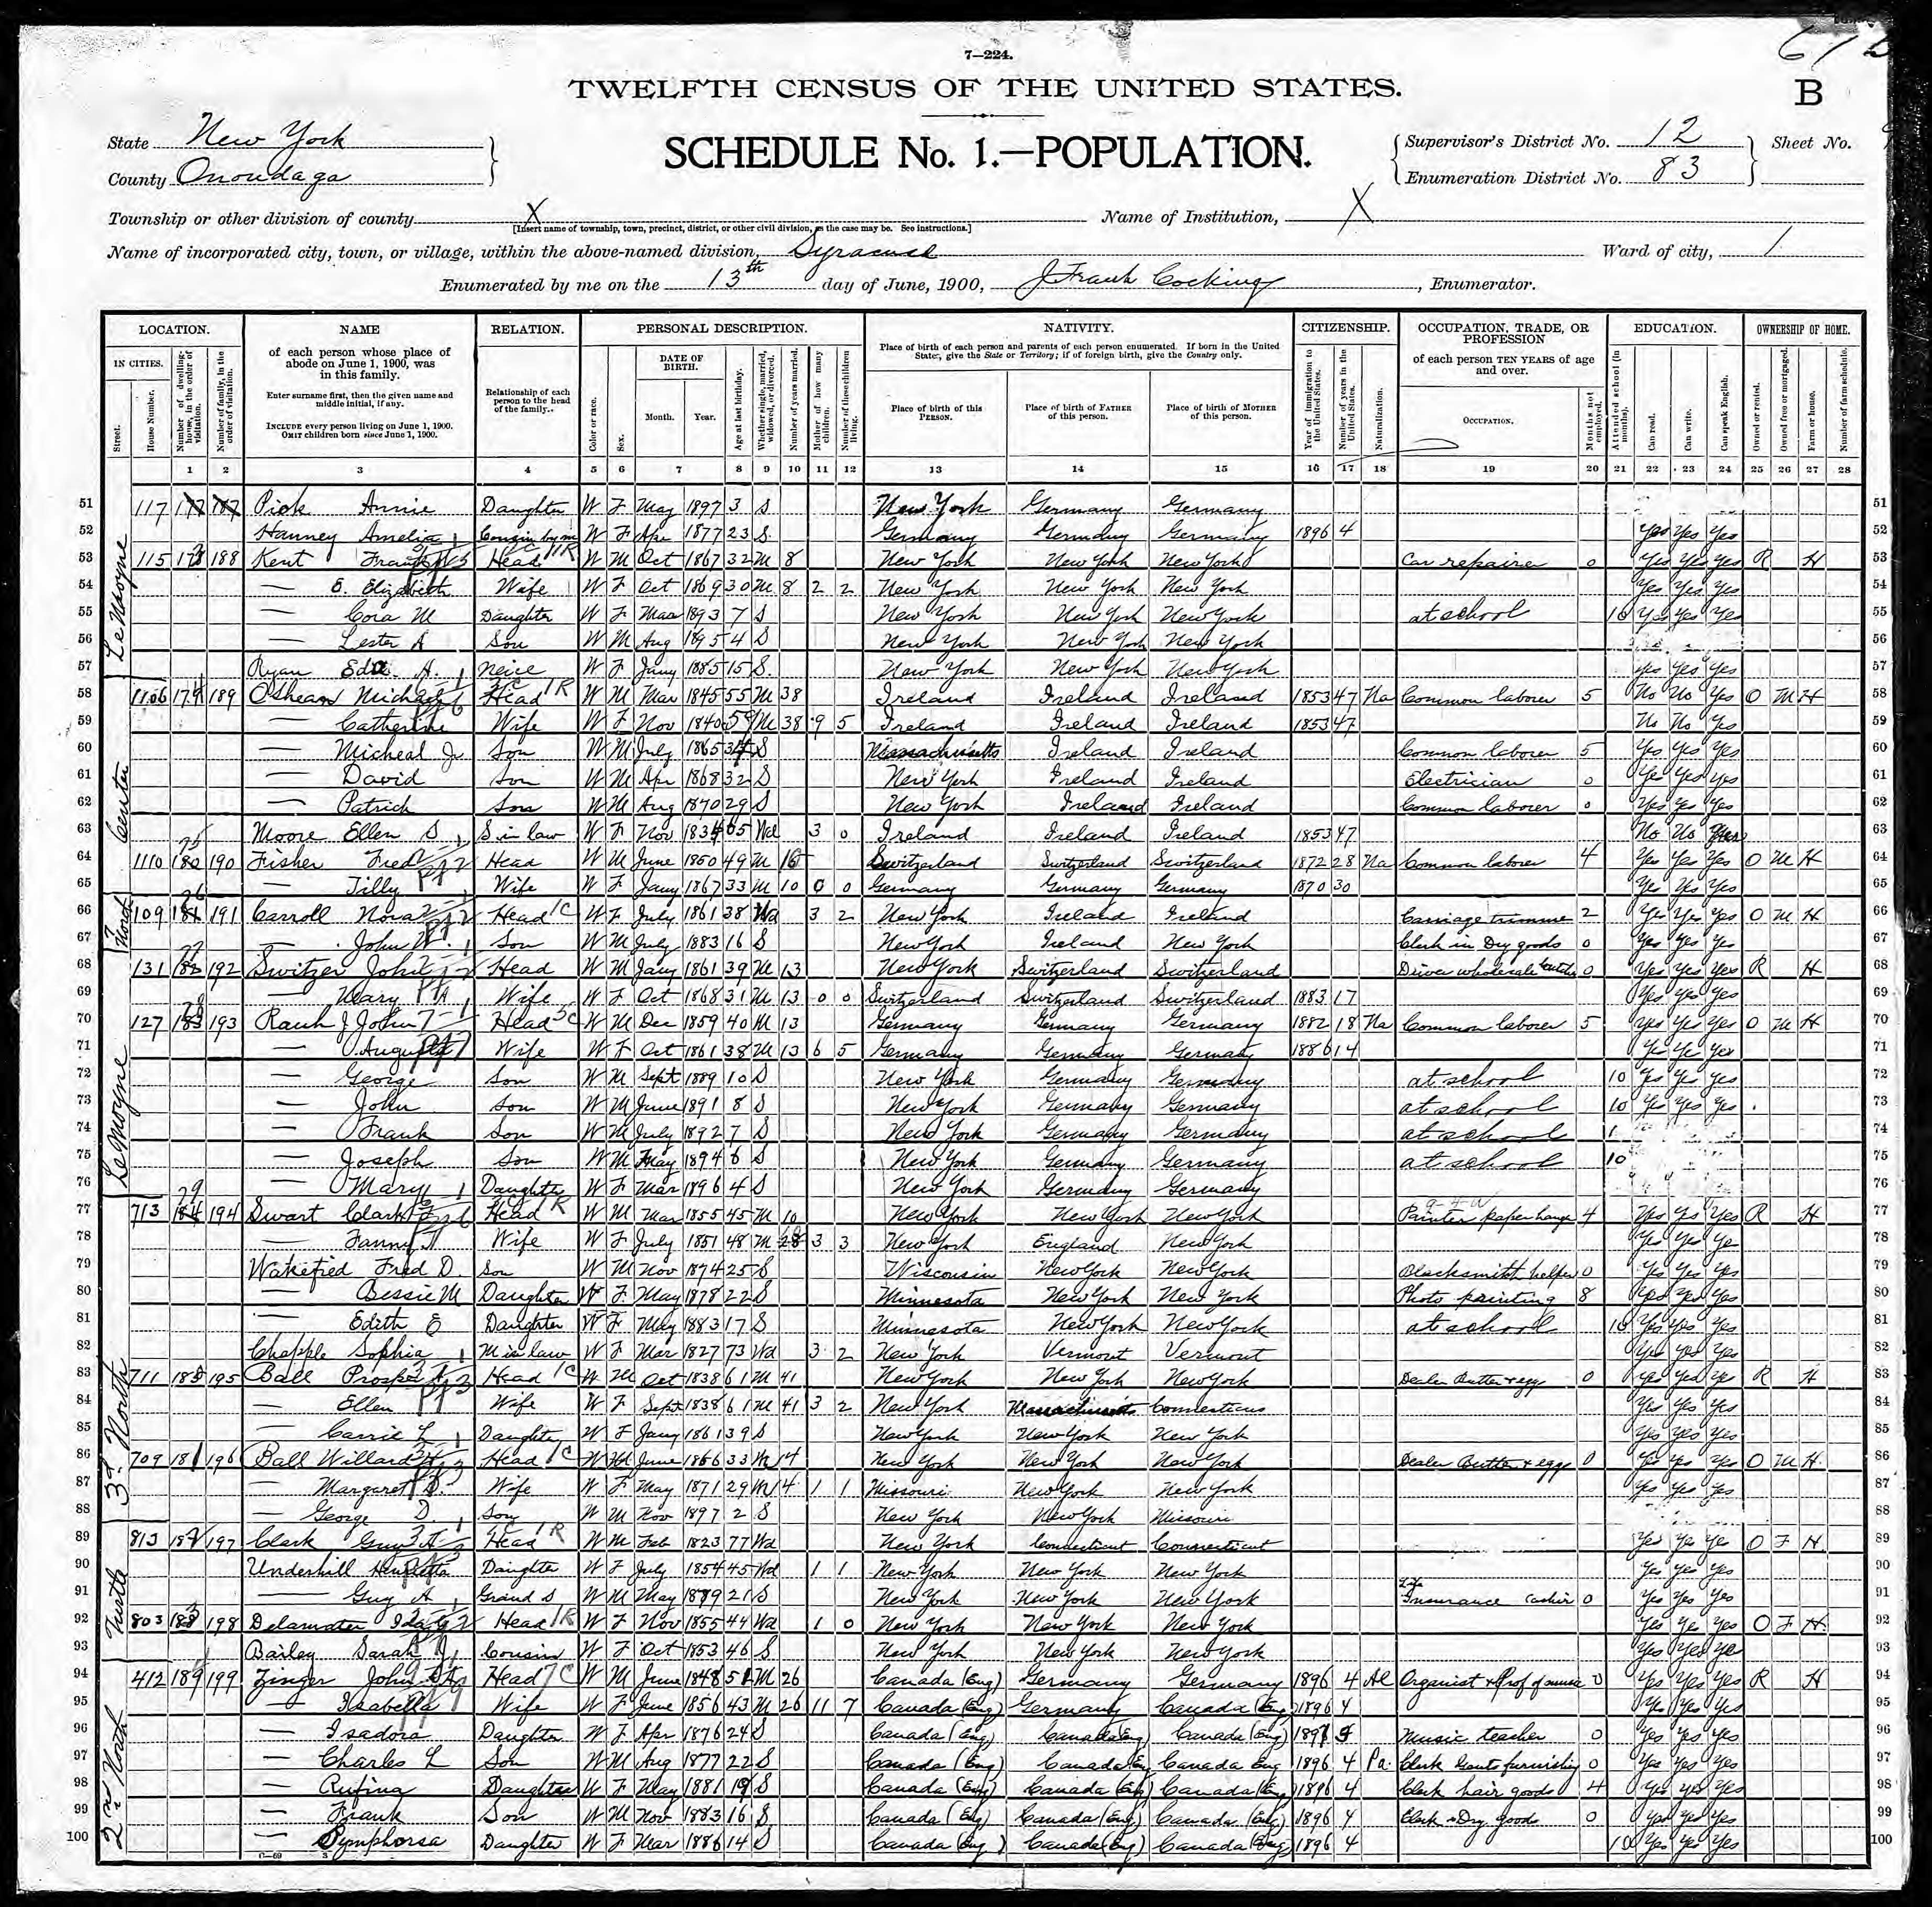 7—224.
TWELFTH CENSUS OF THE UNITED STATES.
B
State New York
SCHEDULE No. 1.—POPULATION.
Supervisor's District No. 12
Sheet No.
County Onondaga
Enumeration District No. 83
Township or other division of county X
Name of Institution, X
[Insert name of township, town, precinct, district, or other civil division, as the case may be. See instructions.]
Name of incorporated city, town, or village, within the above-named division, Syracuse
Ward of city, 1
Enumerated by me on the 13th day of June, 1900, J Frank Cocking, Enumerator.
LOCATION. NAME RELATION. PERSONAL DESCRIPTION. NATIVITY. CITIZENSHIP. OCCUPATION, TRADE, OR PROFESSION EDUCATION. OWNERSHIP OF HOME.
IN CITIES.
Street.
House Number.
Number of dwelling-house, in the order of visitation.
Number of family, in the order of visitation.
of each person whose place of abode on June 1, 1900, was in this family.
Enter surname first, then the given name and middle initial, if any.
INCLUDE every person living on June 1, 1900.
OMIT children born since June 1, 1900.
Relationship of each person to the head of the family.
Color or race.
Sex.
DATE OF BIRTH.
Month. Year.
Age at last birthday.
Whether single, married, widowed, or divorced.
Number of years married.
Mother of how many children.
Number of these children living.
Place of birth of each person and parents of each person enumerated. If born in the United States, give the State or Territory; if of foreign birth, give the Country only.
Place of birth of this PERSON.
Place of birth of FATHER of this person.
Place of birth of MOTHER of this person.
Year of immigration to the United States.
Number of years in the United States.
Naturalization.
of each person TEN YEARS of age and over.
OCCUPATION.
Months not employed.
Attended school (in months).
Can read.
Can write.
Can speak English.
Owned or rented.
Owned free or mortgaged.
Farm or house.
Number of farm schedule.
1 2 3 4 5 6 7 8 9 10 11 12 13 14 15 16 17 18 19 20 21 22 23 24 25 26 27 28
LeMoyne
51 117 Pick Annie Daughter W F May 1897 3 S New York Germany Germany 51
52 Hanney Amelia Cousin by m W F Apr 1877 23 S Germany Germany Germany 1896 4 Yes Yes Yes 52
53 115 188 Kent Frank Head W M Oct 1867 32 M 8 New York New York New York Car repairer 0 Yes Yes Yes R H 53
54 — E. Elizabeth Wife W F Oct 1869 30 M 8 2 2 New York New York New York Yes Yes Yes 54
55 — Cora M Daughter W F Mar 1893 7 S New York New York New York at school 10 Yes Yes Yes 55
56 — Lester A Son W M Aug 1895 4 S New York New York New York 56
57 Ryan Eda A. Neice W F Jany 1885 15 S New York New York New York Yes Yes Yes 57
Center
58 1106 189 Oshean Michael Head W M Mar 1845 55 M 38 Ireland Ireland Ireland 1853 47 Na Common laborer 5 No No Yes O M H 58
59 — Catherine Wife W F Nov 1840 59 M 38 9 5 Ireland Ireland Ireland 1853 47 No No Yes 59
60 — Micheal Jr Son W M July 1865 34 S Massachusetts Ireland Ireland Common laborer 5 Yes Yes Yes 60
61 — David Son W M Apr 1868 32 S New York Ireland Ireland Electrician 0 Yes Yes Yes 61
62 — Patrick Son W M Aug 1870 29 S New York Ireland Ireland Common laborer 0 Yes Yes Yes 62
63 Moore Ellen S. S in law W F Nov 1834 65 Wd 3 0 Ireland Ireland Ireland 1853 47 No No Yes 63
64 1110 190 Fisher Fred Head W M June 1850 49 M 10 Switzerland Switzerland Switzerland 1872 28 Na Common laborer 4 Yes Yes Yes O M H 64
65 — Tilly Wife W F Jany 1867 33 M 10 0 0 Germany Germany Germany 1870 30 Yes Yes Yes 65
North
66 109 191 Carroll Nora Head W F July 1861 38 Wd 3 2 New York Ireland Ireland Carriage trimmer 2 Yes Yes Yes O M H 66
67 — John W. Son W M July 1883 16 S New York Ireland New York Clerk in Dry goods 0 Yes Yes Yes 67
LeMoyne
68 131 192 Switzer John Head W M Jany 1861 39 M 13 New York Switzerland Switzerland Driver wholesale butcher 0 Yes Yes Yes R H 68
69 — Mary A Wife W F Oct 1868 31 M 13 0 0 Switzerland Switzerland Switzerland 1883 17 Yes Yes Yes 69
70 127 193 Rauh J John Head W M Dec 1859 40 M 13 Germany Germany Germany 1882 18 Na Common laborer 5 Yes Yes Yes O M H 70
71 — Augusta Wife W F Oct 1861 38 M 13 6 5 Germany Germany Germany 1886 14 Yes Yes Yes 71
72 — George Son W M Sept 1889 10 S New York Germany Germany at school 10 Yes Yes Yes 72
73 — John Son W M June 1891 8 S New York Germany Germany at school 10 Yes Yes Yes 73
74 — Frank Son W M July 1892 7 S New York Germany Germany at school 74
75 — Joseph Son W M May 1894 6 S New York Germany Germany at school 10 75
76 — Mary Daughter W F Mar 1896 4 S New York Germany Germany 76
3rd North
77 713 194 Swart Clark Head W M Mar 1855 45 M 10 New York New York New York Painter paper hanger 4 Yes Yes Yes R H 77
78 — Fanny Wife W F July 1851 48 M 3 3 New York England New York Yes Yes Yes 78
79 Wakefied Fred D. Son W M Nov 1874 25 S Wisconsin New York New York Blacksmith helper 0 Yes Yes Yes 79
80 — Bessie M Daughter W F May 1878 22 S Minnesota New York New York Photo printing 8 Yes Yes Yes 80
81 — Edith E Daughter W F May 1883 17 S Minnesota New York New York at school 10 Yes Yes Yes 81
82 Chapple Sophia M in law W F Mar 1827 73 Wd 3 2 New York Vermont Vermont Yes Yes Yes 82
83 711 195 Ball Prosper Head W M Oct 1838 61 M 41 New York New York New York Dealer Butter & egg 0 Yes Yes Yes R H 83
84 — Ellen Wife W F Sept 1838 61 M 41 3 2 New York Massachusetts Connecticus Yes Yes Yes 84
85 — Carrie L Daughter W F Jany 1861 39 S New York New York New York Yes Yes Yes 85
86 709 181 196 Ball Willard Head W M June 1866 33 M 4 New York New York New York Dealer Butter & egg 0 Yes Yes Yes O M H 86
87 — Margaret D. Wife W F May 1871 29 M 4 1 1 Missouri New York New York Yes Yes Yes 87
88 — George D. Son W M Nov 1897 2 S New York New York Missouri 88
Turtle
89 813 197 Clark Guy A Head W M Feb 1823 77 Wd New York Connecticut Connecticut Yes Yes Yes O F H 89
90 Underhill Henrietta Daughter W F July 1854 45 Wd 1 1 New York New York New York Yes Yes Yes 90
91 — Guy A Grand S W M May 1879 21 S New York New York New York Life Insurance Cashier 0 Yes Yes Yes 91
92 803 198 Delamater Ida Head W F Nov 1855 44 Wd 1 0 New York New York New York Yes Yes Yes O F H 92
93 Bailey Sarah J Cousin W F Oct 1853 46 S New York New York New York Yes Yes Yes 93
2nd North
94 412 189 199 Zinger John Head W M June 1848 51 M 26 Canada (Eng) Germany Germany 1896 4 Al Organist & Prof of music 0 Yes Yes Yes R H 94
95 — Isabella Wife W F June 1856 43 M 26 11 7 Canada (Eng) Germany Canada (Eng) 1896 4 Yes Yes Yes 95
96 — Isadora Daughter W F Apr 1876 24 S Canada (Eng) Canada (Eng) Canada (Eng) Music teacher 0 Yes Yes Yes 96
97 — Charles L Son W M Aug 1877 22 S Canada (Eng) Canada Eng Canada Eng 1896 4 Pa Clerk Gents furnishing 0 Yes Yes Yes 97
98 — Rufina Daughter W F May 1881 19 S Canada (Eng) Canada (Eng) Canada (Eng) 1896 4 Clerk hair goods 4 Yes Yes Yes 98
99 — Frank Son W M Nov 1883 16 S Canada (Eng) Canada (Eng) Canada (Eng) 1896 4 Clerk Dry goods 0 Yes Yes Yes 99
100 — Symphorsa Daughter W F Mar 1886 14 S Canada (Eng) Canada (Eng) Canada (Eng) 1896 4 10 Yes Yes Yes 100